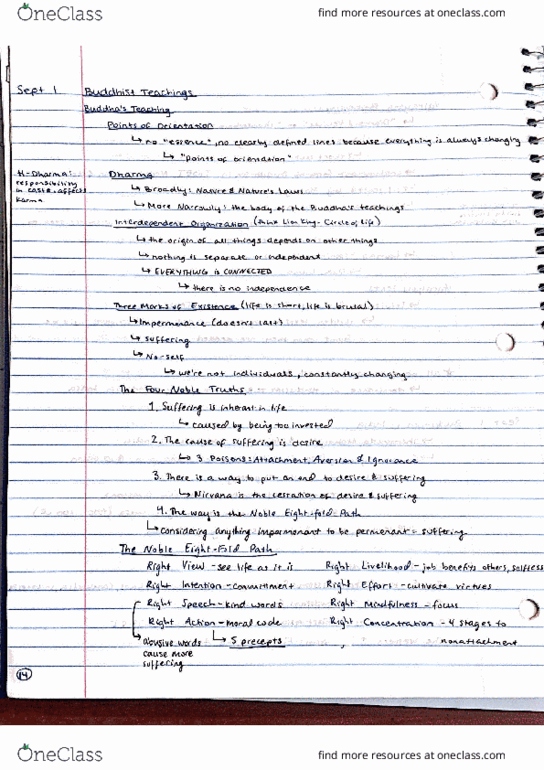 OneClass find more resources at oneclass.com
Sept 1 Buddhist Teachings
Buddha's Teaching
Points of Orientation
↳ no "essence", no clearly defined lines because everything is always changing
↳ "points of orientation"
H-Dharma: responsibility in caste-affects karma
Dharma
↳ Broadly: Nature & Nature's Laws
↳ More Narrowly: the body of the Buddha's teachings
Interdependent Organization (think Lion King - Circle of Life)
↳ the origin of all things depends on other things
↳ nothing is separate or independent
↳ EVERYTHING is CONNECTED
↳ there is no independence
Three Marks of Existence (life is short, life is brutal)
↳ Impermanence (doesn't last)
↳ suffering
↳ No-self
↳ we're not individuals, constantly changing
The Four Noble Truths
1. Suffering is inherent in life
↳ caused by being too invested
2. The cause of suffering is desire
↳ 3 Poisons: Attachment, Aversion & Ignorance
3. There is a way to put an end to desire & suffering
↳ Nirvana is the cessation of desire & suffering
4. The way is the Noble Eight-fold-Path
↳ considering anything impermanent to be permanent = suffering
The Noble Eight-Fold Path
Right View - see life as it is Right Livelihood - job benefits others, selfless
Right Intention - commitment Right Effort - cultivate virtues
Right Speech - kind words Right Mindfulness - focus
Right Action - moral code Right Concentration - 4 stages to
↳ abusive words ↳ 5 precepts nonattachment
cause more
suffering
14
OneClass find more resources at oneclass.com